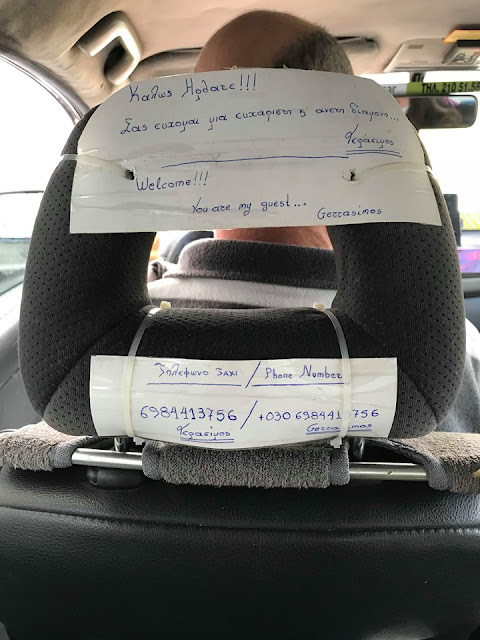 ΤΗΛ. 210 51.56
Καλως Ηρθατε!!!
Σας ευχομαι μια ευχαριστη & ανετη διαμονη...
Γεράσιμος
Welcome!!!
You are my guest... Gerrasimos
Τηλεφωνο ΤΑΧΙ / Phone Number
6984413756 / +030 698441 756
Γεράσιμος Gerrasimos